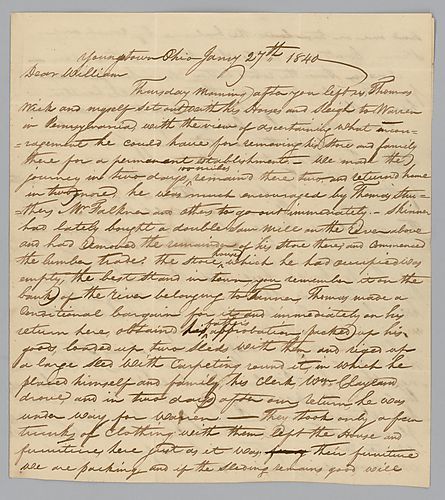 Youngstown Ohio Jany 27th 1840
Dear William
Thursday Morning after you left us, Thomas
Wick and myself set out with his Horse and Sleigh to Warren
in Pennsylvania, with the view of ascertaining what encou-
ragement he could have for removing his Store and family
there for a permanent establishment – We made the
journey in two days, remained there two and returned home
in two more, he was much encouraged by Thomas Stru-
thers Mr Falkner and others to go out immediately – Skinner
had lately bought a double Saw Mill on the River above
and had removed the remainder of his Store there, and commenced
the lumber trade; the Store house which he had occupied was
empty, the best Stand in town you remember it on the
bank of the river belonging to Turner, Thomas made a
conditional bargain for it and immediately on his
return here, obtained fathers approbation packed up his
goods loaded up two Sleds with them and riged up
a large Sled with Carpeting round it, in which he
placed himself and family, his Clerk Wm Cleyland
drove, and in two days after our return he was
under way for Warren – They took only a few
trunks of Clothing with them left the House and
furniture here just as it was, their furniture
we are packing and if the Sleding remains good will